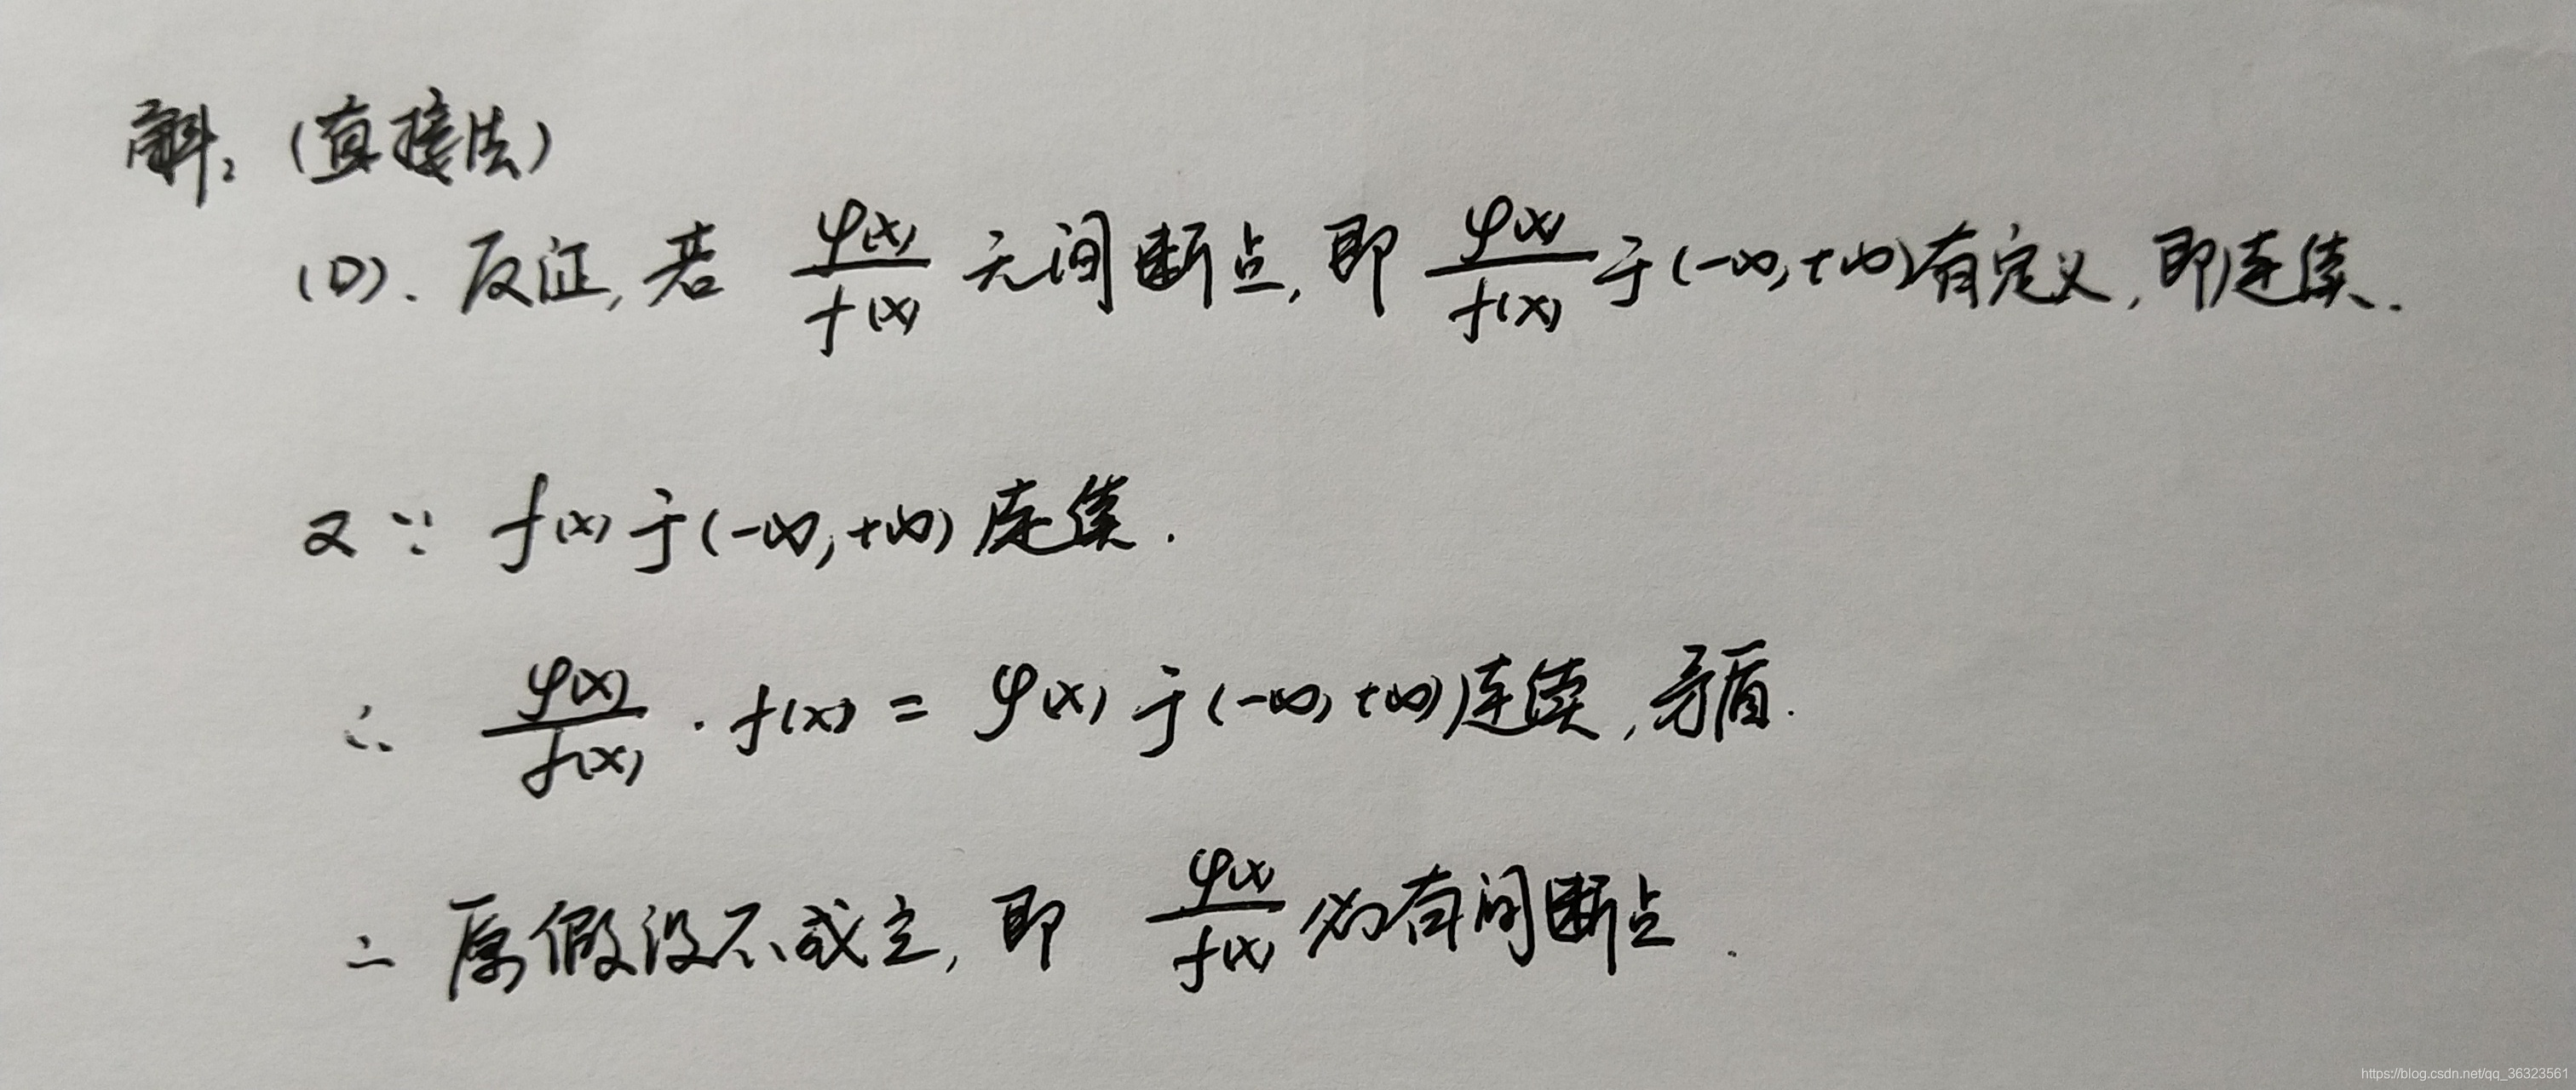 解:(直接法)
(D). 反证, 若 φ(x)/f(x) 无间断点, 即 φ(x)/f(x) 于(-∞,+∞)有定义, 即连续.
又∵ f(x)于(-∞,+∞)连续.
∴ φ(x)/f(x) · f(x) = φ(x)于(-∞,+∞)连续, 矛盾.
∴ 原假设不成立, 即 φ(x)/f(x) 必有间断点.
https://blog.csdn.net/qq_36323561